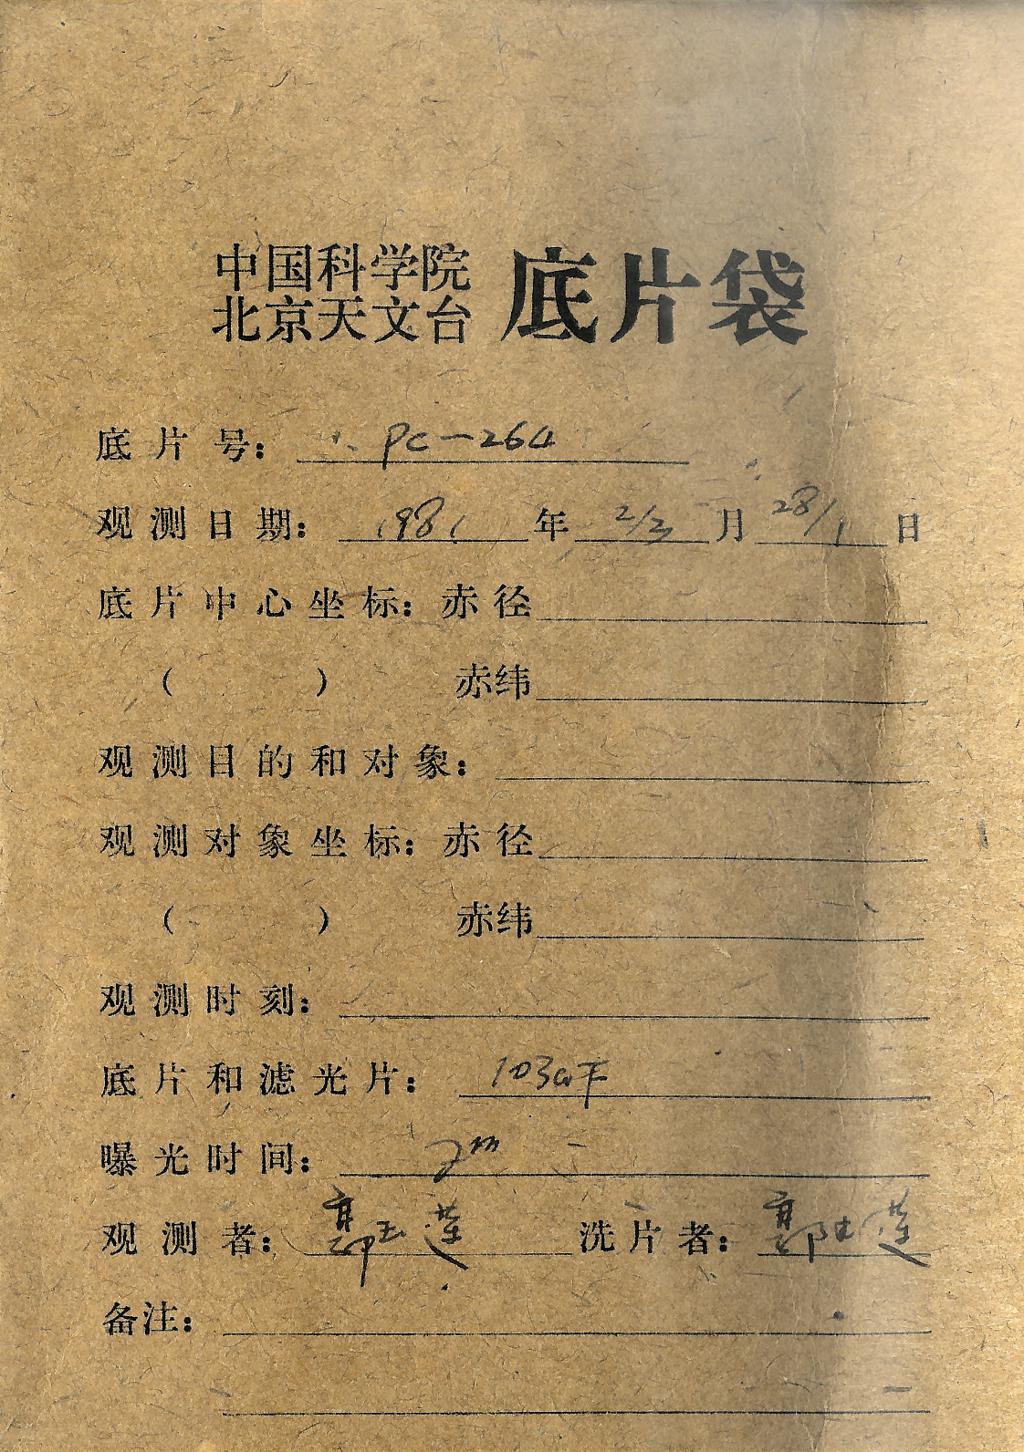 中国科学院
北京天文台 底片袋
底片号: PC-264
观测日期: 1981 年 2/2 月 28/1 日
底片中心坐标: 赤径
( ) 赤纬
观测目的和对象:
观测对象坐标: 赤径
( ) 赤纬
观测时刻:
底片和滤光片: 103aF
曝光时间: 2m
观测者: 郭玉莲 洗片者: 郭玉莲
备注: